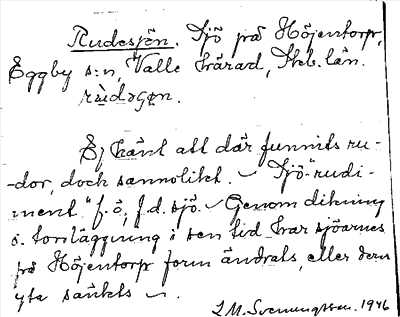 Rudesjön. Sjö på Höjentorp,
Eggby s:n, Valle härad, Skb. län.
rùdəʂøn.
Ej känt att där funnits ru-
-dor, dock sannolikt. ~ Sjö-"rudi-
ment" f.ö., f.d. sjö. ~ Genom dikning
o. torrläggning i sen tid har sjöarnes
på Höjentorp form ändrats, eller dess
yta sänkts ~.
L.M. Svenungsson. 1946